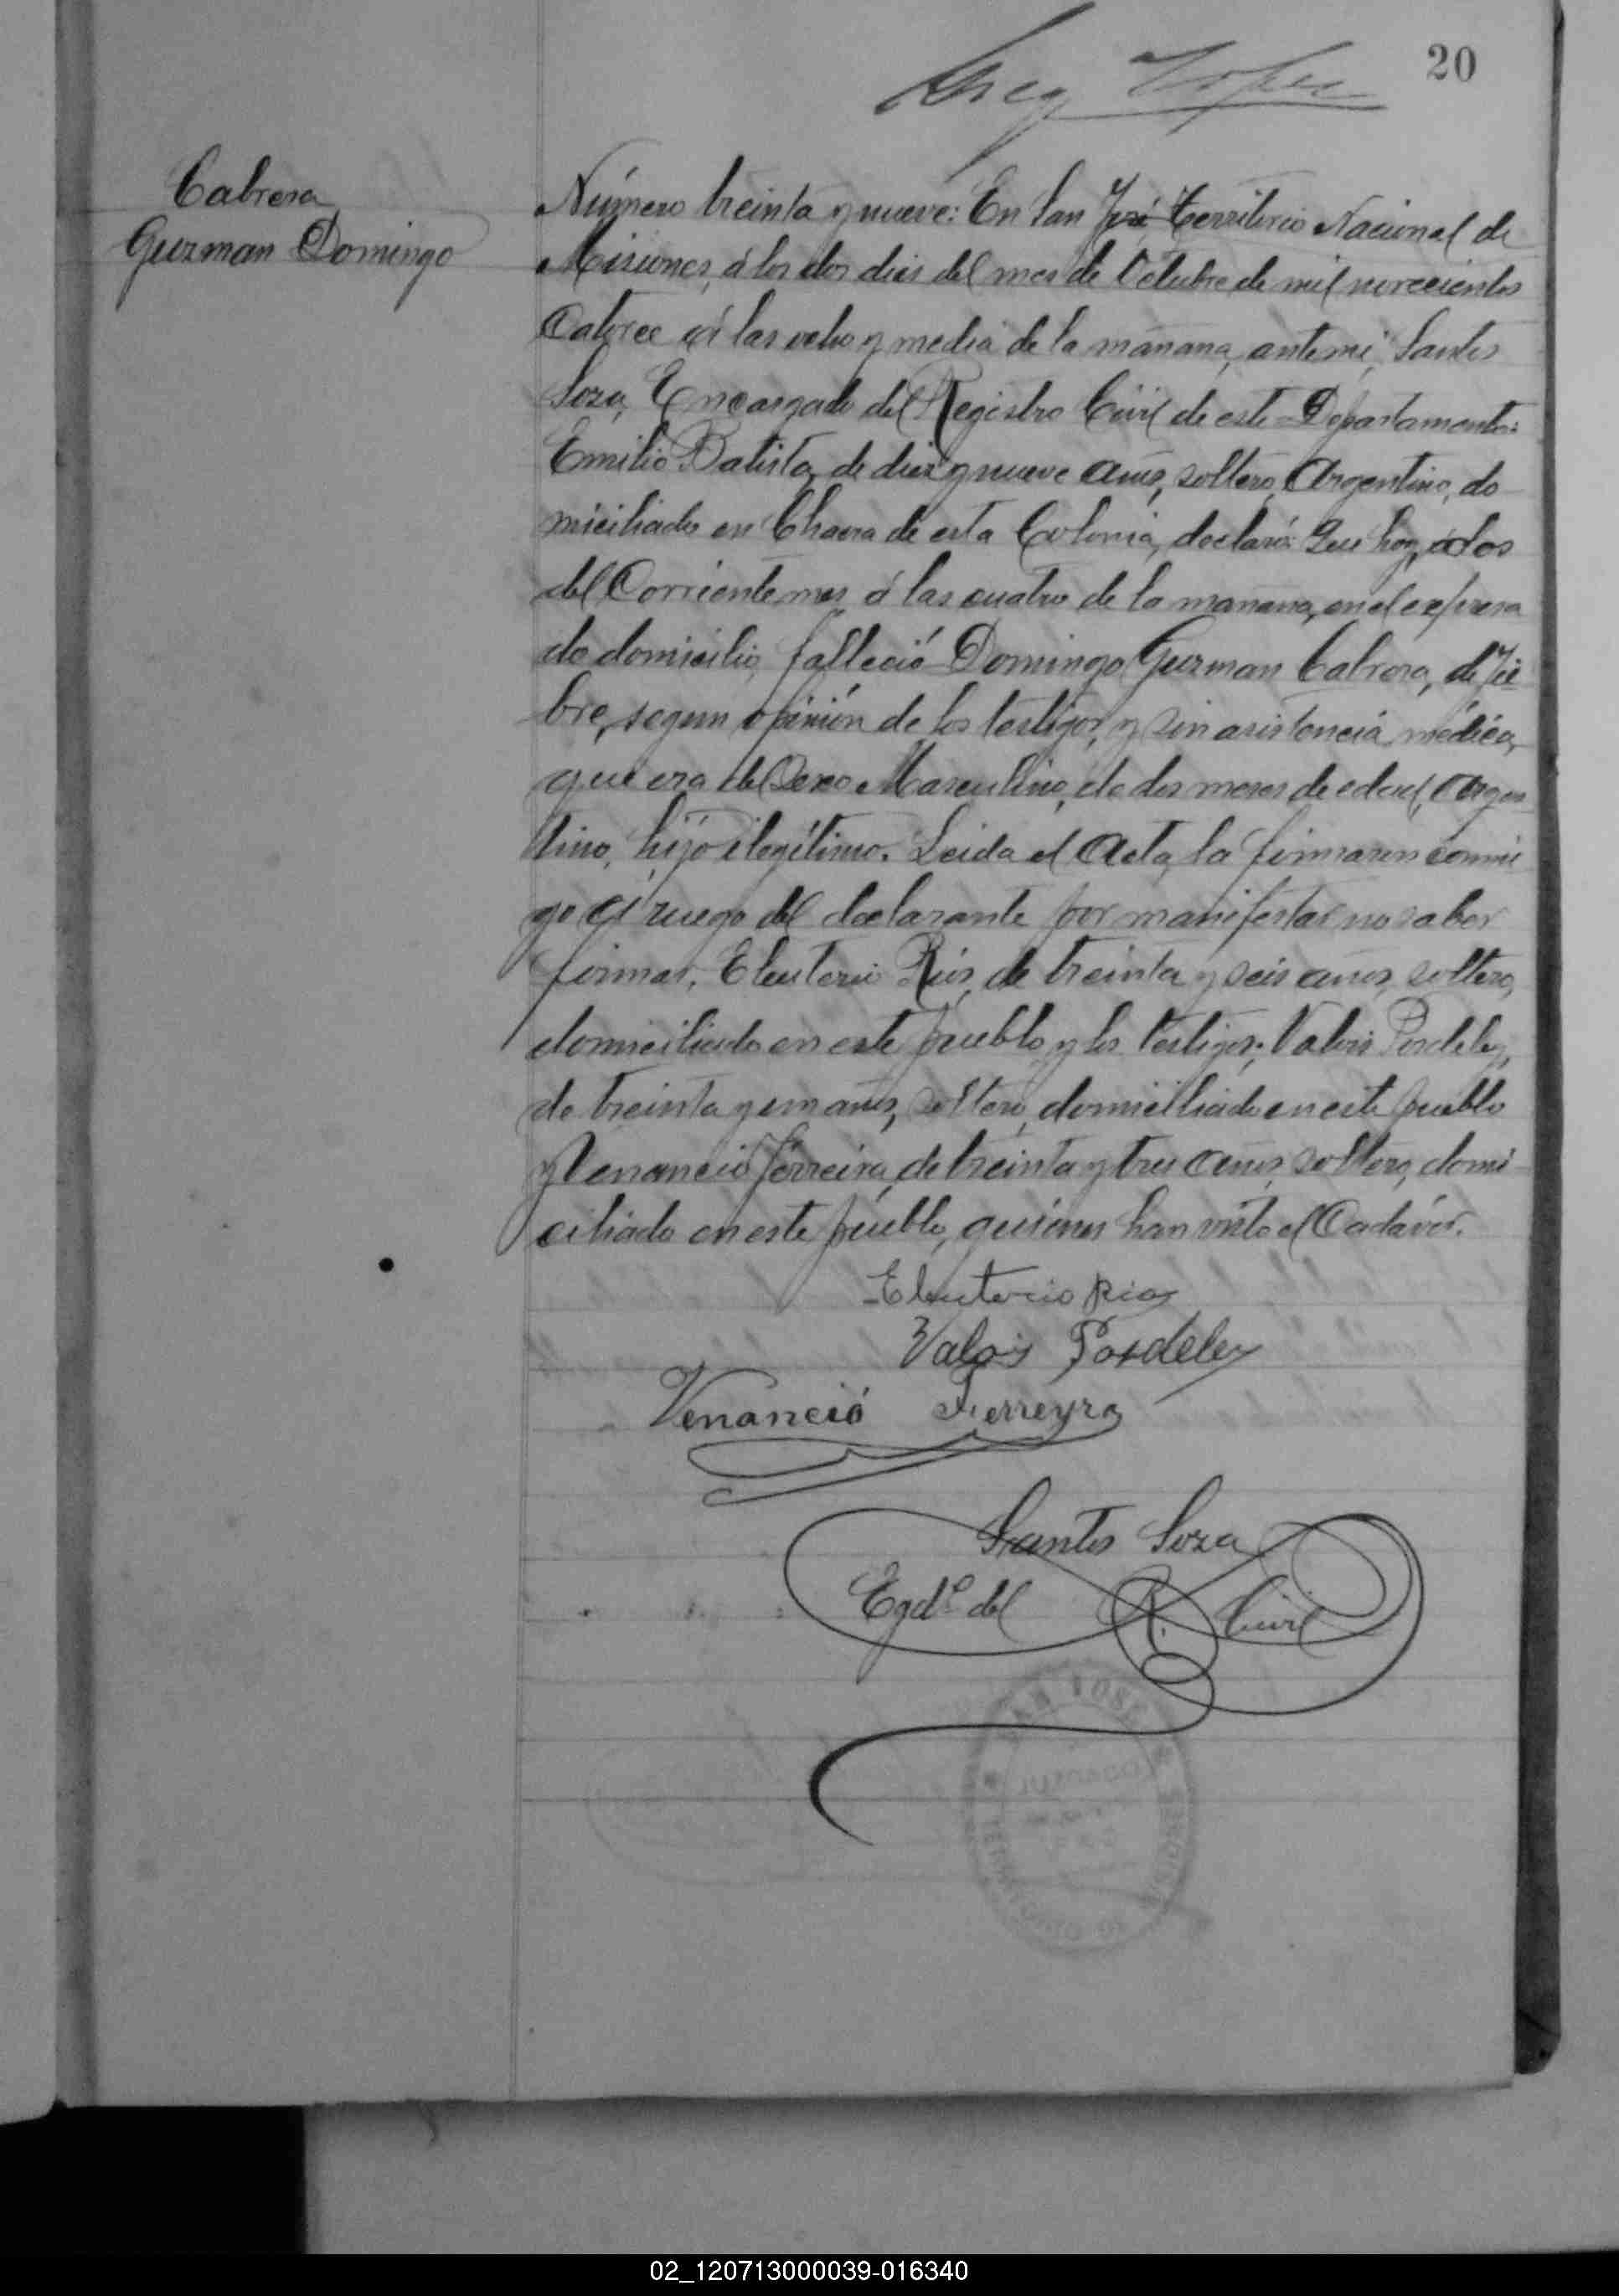 20
Cabrera
Guzman Domingo
Número treinta y nueve: En San José Territorio Nacional de
Misiones, á los dos dias del mes de Octubre de mil novecientos
Catorce á las ocho y media de la mañana, ante mi, Santos
Soza, Encargado del Registro Civil de este Departamento:
Emilio Batista, de diez y nueve años, soltero, Argentino, do
miciliado en Chacra de esta Colonia, declaró: Que hoy, dos
del Corriente mes á las cuatro de la mañana, en el expresa
do domicilio, falleció Domingo Guzman Cabrera, de fie-
bre, segun opinión de los testigos, y sin asistencia médica,
que era del Sexo Masculino, de dos meses de edad, Argen
tino, hijo ilegítimo. Leida el Acta, la firmaron conmi
go á ruego del declarante por manifestar no saber
firmar, Eleuterio Rios, de treinta y seis años, soltero,
domiciliado en este pueblo y los testigos: Valois Posdeley,
de treinta y un años, soltero, domiciliado en este pueblo
y Venancio Ferreira, de treinta y tres años, soltero, domi-
ciliado en este pueblo, quienes han visto el Cadáver.
Eleuterio Rios
Valois Posdeley
Venanció Ferreyra
Santos Soza
Egdo. del R. Civil
SAN JOSE
JUZGADO
02_120713000039-016340